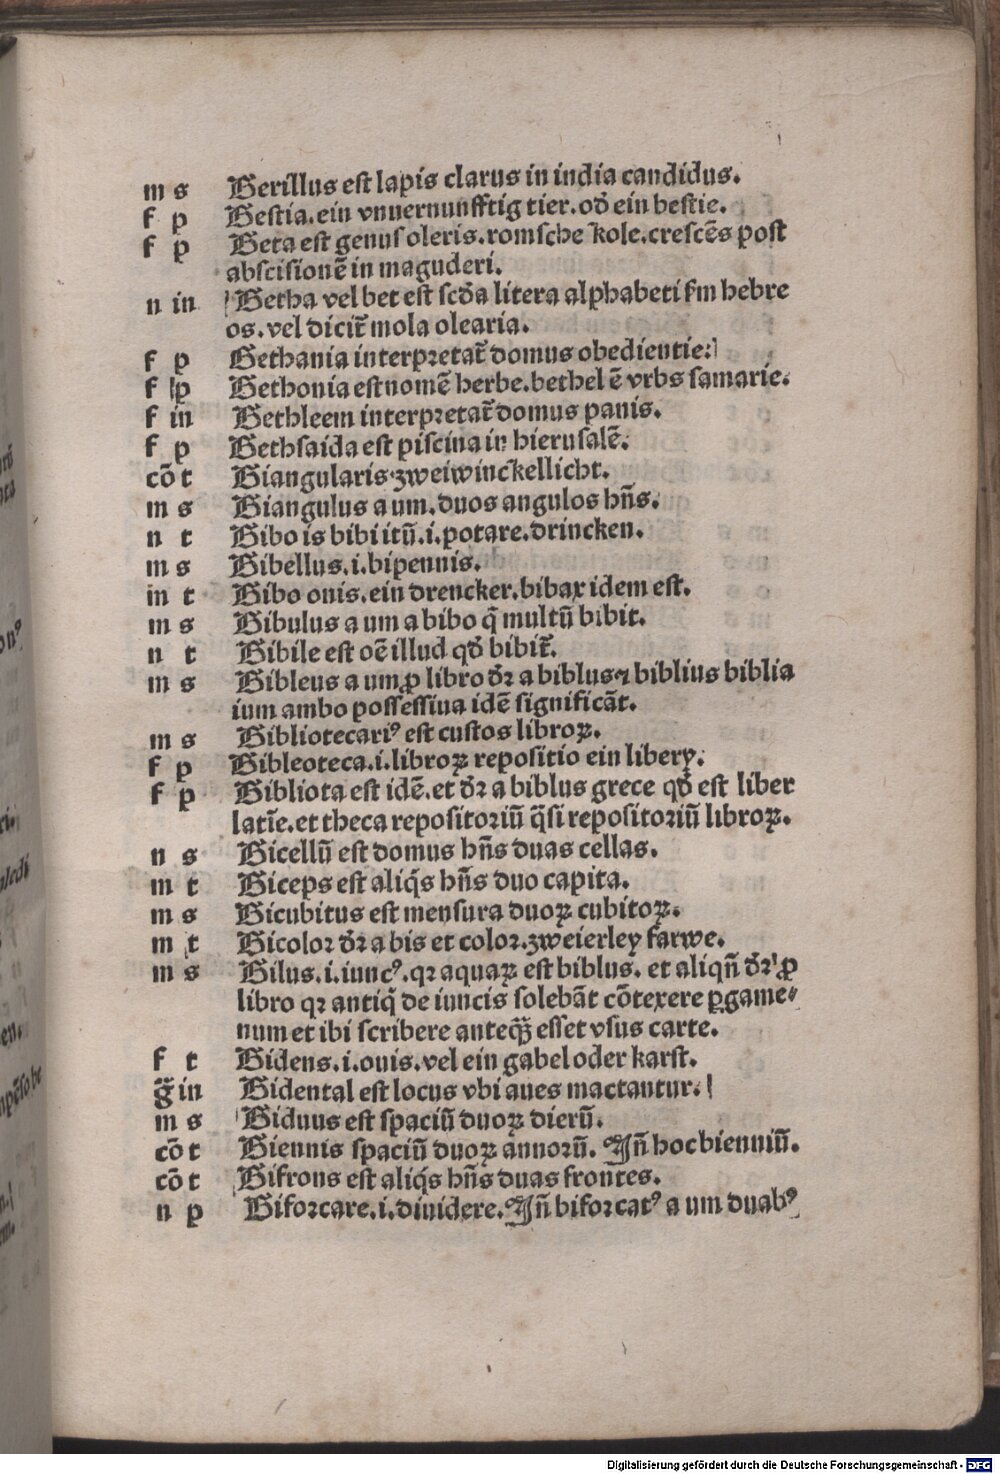 m s Berillus est lapis clarus in india candidus.
f p Bestia.ein vnuernunfftig tier.od̉ ein bestie.
f p Beta est genus oleris.romsche kole.crescẽs post
abscisionẽ in maguderi.
n in Betha vel bet est scđa litera alphabeti fm hebre
os.vel dicit̃ mola olearia.
f p Bethania interpretat̃ domus obedientie:
f p Bethonia est nomẽ herbe.bethel ẽ vrbs samarie.
f in Bethleem interpretat̃ domus panis.
f p Bethsaida est piscina in hierusalẽ.
cõ t Biangularis.zweiwinckellicht.
m s Biangulus a um.duos angulos hñs.
n t Bibo is bibi itũ.i.potare.drincken.
m s Bibellus.i.bipennis.
in t Bibo onis.ein drencker.bibax idem est.
m s Bibulus a um a bibo q̃ multũ bibit.
n t Bibile est oẽ illud qd̉ bibit̃.
m s Bibleus a um ꝓ libro dr̃ a biblus ⁊ biblius biblia
ium ambo possessiua idẽ significãt.
m s Bibliotecariꝰ est custos libroꝝ.
f p Bibleoteca.i.libroꝝ repositio ein libery.
f p Bibliota est idẽ.et dr̃ a biblus grece qd̉ est liber
latĩe.et theca repositoriũ q̃si repositoriũ libroꝝ.
n s Bicellũ est domus hñs duas cellas.
m t Biceps est aliq̃s hñs duo capita.
m s Bicubitus est mensura duoꝝ cubitoꝝ.
m t Bicolor dr̃ a bis et color.zweierley farwe.
m s Bilus.i.iuncꝰ.qr aquaꝝ est biblus. et aliqñ dr̃ ꝓ
libro qr antiq̃ de iuncis solebãt cõtexere ꝑgame⸗
num et ibi scribere anteq̃ꝫ esset vsus carte.
f t Bidens.i.ouis.vel ein gabel oder karst.
g̃ in Bidental est locus vbi aues mactantur.
m s Biduus est spaciũ duoꝝ dierũ.
cõ t Biennis spaciũ duoꝝ annorũ. Jñ hoc bienniũ.
cõ t Bifrons est aliq̃s hñs duas frontes.
n p Biforcare.i.diuidere.Jñ biforcatꝰ a um duabꝰ